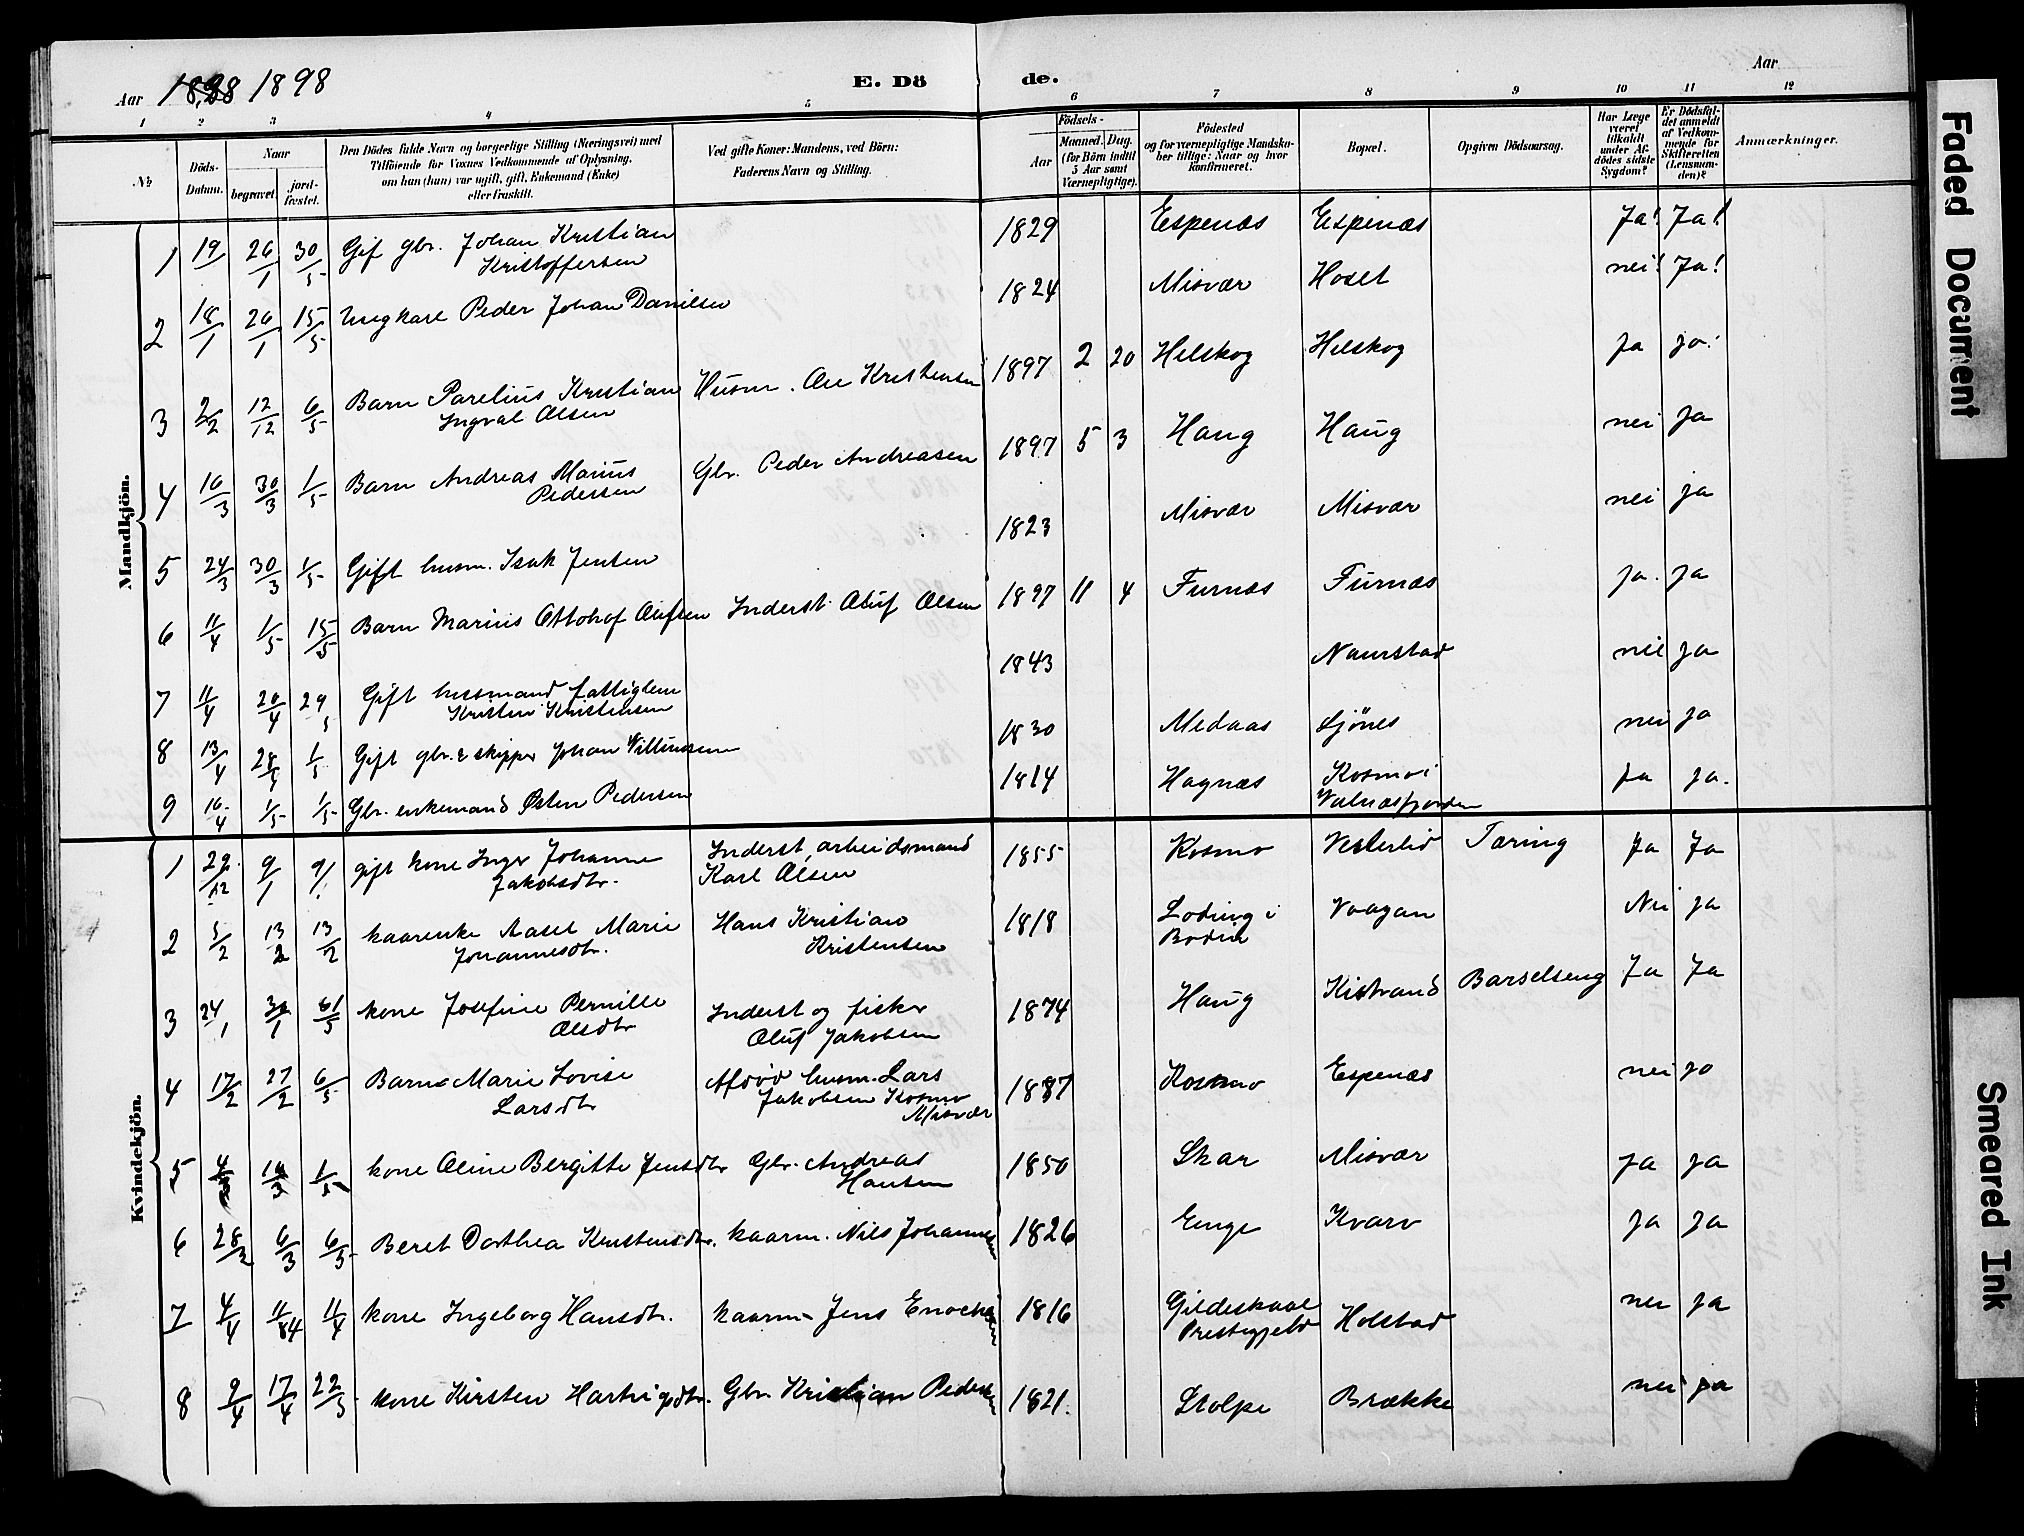 Aar 1898 1898
E. Dö de.
Aar
1 2 3 4 5 6 7 8 9 10 11 12
No
Döds-Datum.
Naar
begravet.
jord-fæstet.
Den Dödes fulde Navn og borgerlige Stilling (Næringsvei) med
Tilföiende for Voxnes Vedkommende af Oplysning,
om han (hun) var ugift, gift, Enkemand (Enke)
eller fraskilt.
Ved gifte Koner: Mandens, ved Börn:
Faderens Navn og Stilling.
Födsels-
Aar
Maaned. Dag.
(for Börn indtil
5 Aar samt
Værnepligtige).
Födested
og for værnepligtige Mandska-
ber tillige: Naar og hvor
konfirmeret.
Bopæl.
Opgiven Dödsaarsag.
Har Læge
været
tilkaldt
under Af-
dödes sidste
Sygdom?
Er Dödsfal-
det anmeldt
af Vedkom-
mende for
Skifteretten
(Lensman-
den)?
Anmærkninger.
Mandkjön.
1 19/ 26/1 30/5 Gift gbr. Johan Kristian 1829 Espenæs Espenæs Ja! Ja!
Kristoffersen
2 18/1 26/1 15/5 Ungkarl Peder Johan Danielsen 1824 Misvær Hoset nei! Ja!
3 2/2 12/12 6/5 Barn Parelius Kristian Husm. Ole Kristensen 1897 2 20 Helskog Helskog ja ja!
Ingval Olsen
4 16/3 30/3 1/5 Barn Andreas Marius Gbr. Peder Andreasen 1897 5 3 Haug Haug nei ja
Pedersen
5 24/3 30/3 1/5 Gift husm. Isak Jensen 1823 Misvær Misvær nei ja
6 11/4 1/5 15/5 Barn Marius Ottohof Olufsen Inderst Oluf Olsen 1897 11 4 Furnæs Furnæs ja. ja
7 11/4 20/4 29/5 Gift husmand fattiglem 1843 Naurstad nei ja
Kristen Kristensen
8 13/4 28/4 1/5 Gift gbr. & skipper Johan Villumsen 1830 Medaas Ljönes nei ja
9 16/4 1/5 1/5 Gbr. enkemand Østen Pedersen 1814 Hagnæs Kosmo i ja ja.
Valnæsfjorden
Kvindekjön.
1 29/12 9/1 9/1 gift kone Inger Johanne Inderst, arbeidsmand 1855 Kosmo Vesterlid Tæring Ja Ja
Jakobsdtr. Karl Olsen
2 5/2 13/2 13/2 kaarenke Aasel Marie Hans Kristian 1818 Loding i Vaagan Nei ja
Johannesdtr. Kristensen Bodin
3 24/1 30/1 61/5 kone Josefine Pernille Inderst og fisker 1874 Haug Kistrand Barselseng Ja Ja
Olsdtr Oluf Jakobsen
4 17/2 27/2 6/5 Barn Marie Lovise Afdöd husm. Lars 1887 Kosmo Espenæs nei jo
Larsdtr Jakobsen Kosmo
Misvær
5 4/3 14/3 1/5 kone Oline Bergitte Jensdtr Gbr. Andreas 1850 Skar Misvær ja ja
Hansen
6 28/2 6/3 6/5 Beret Dorthea Kristensdtr. kaarm. Nils Johannesen 1826 Enge Kvarv Ja Ja
7 4/4 11/84 11/4 kone Ingeborg Hansdtr. kaarm. Jens Enochsen 1816 Gildeskaal Holstad nei ja
Prestegjeld
8 9/4 17/4 22/5 kone Kirsten Hartvigsdtr. Gbr. Kristian Pedersen 1821. Stolpe Brække nei ja
Faded Document
Smeared Ink